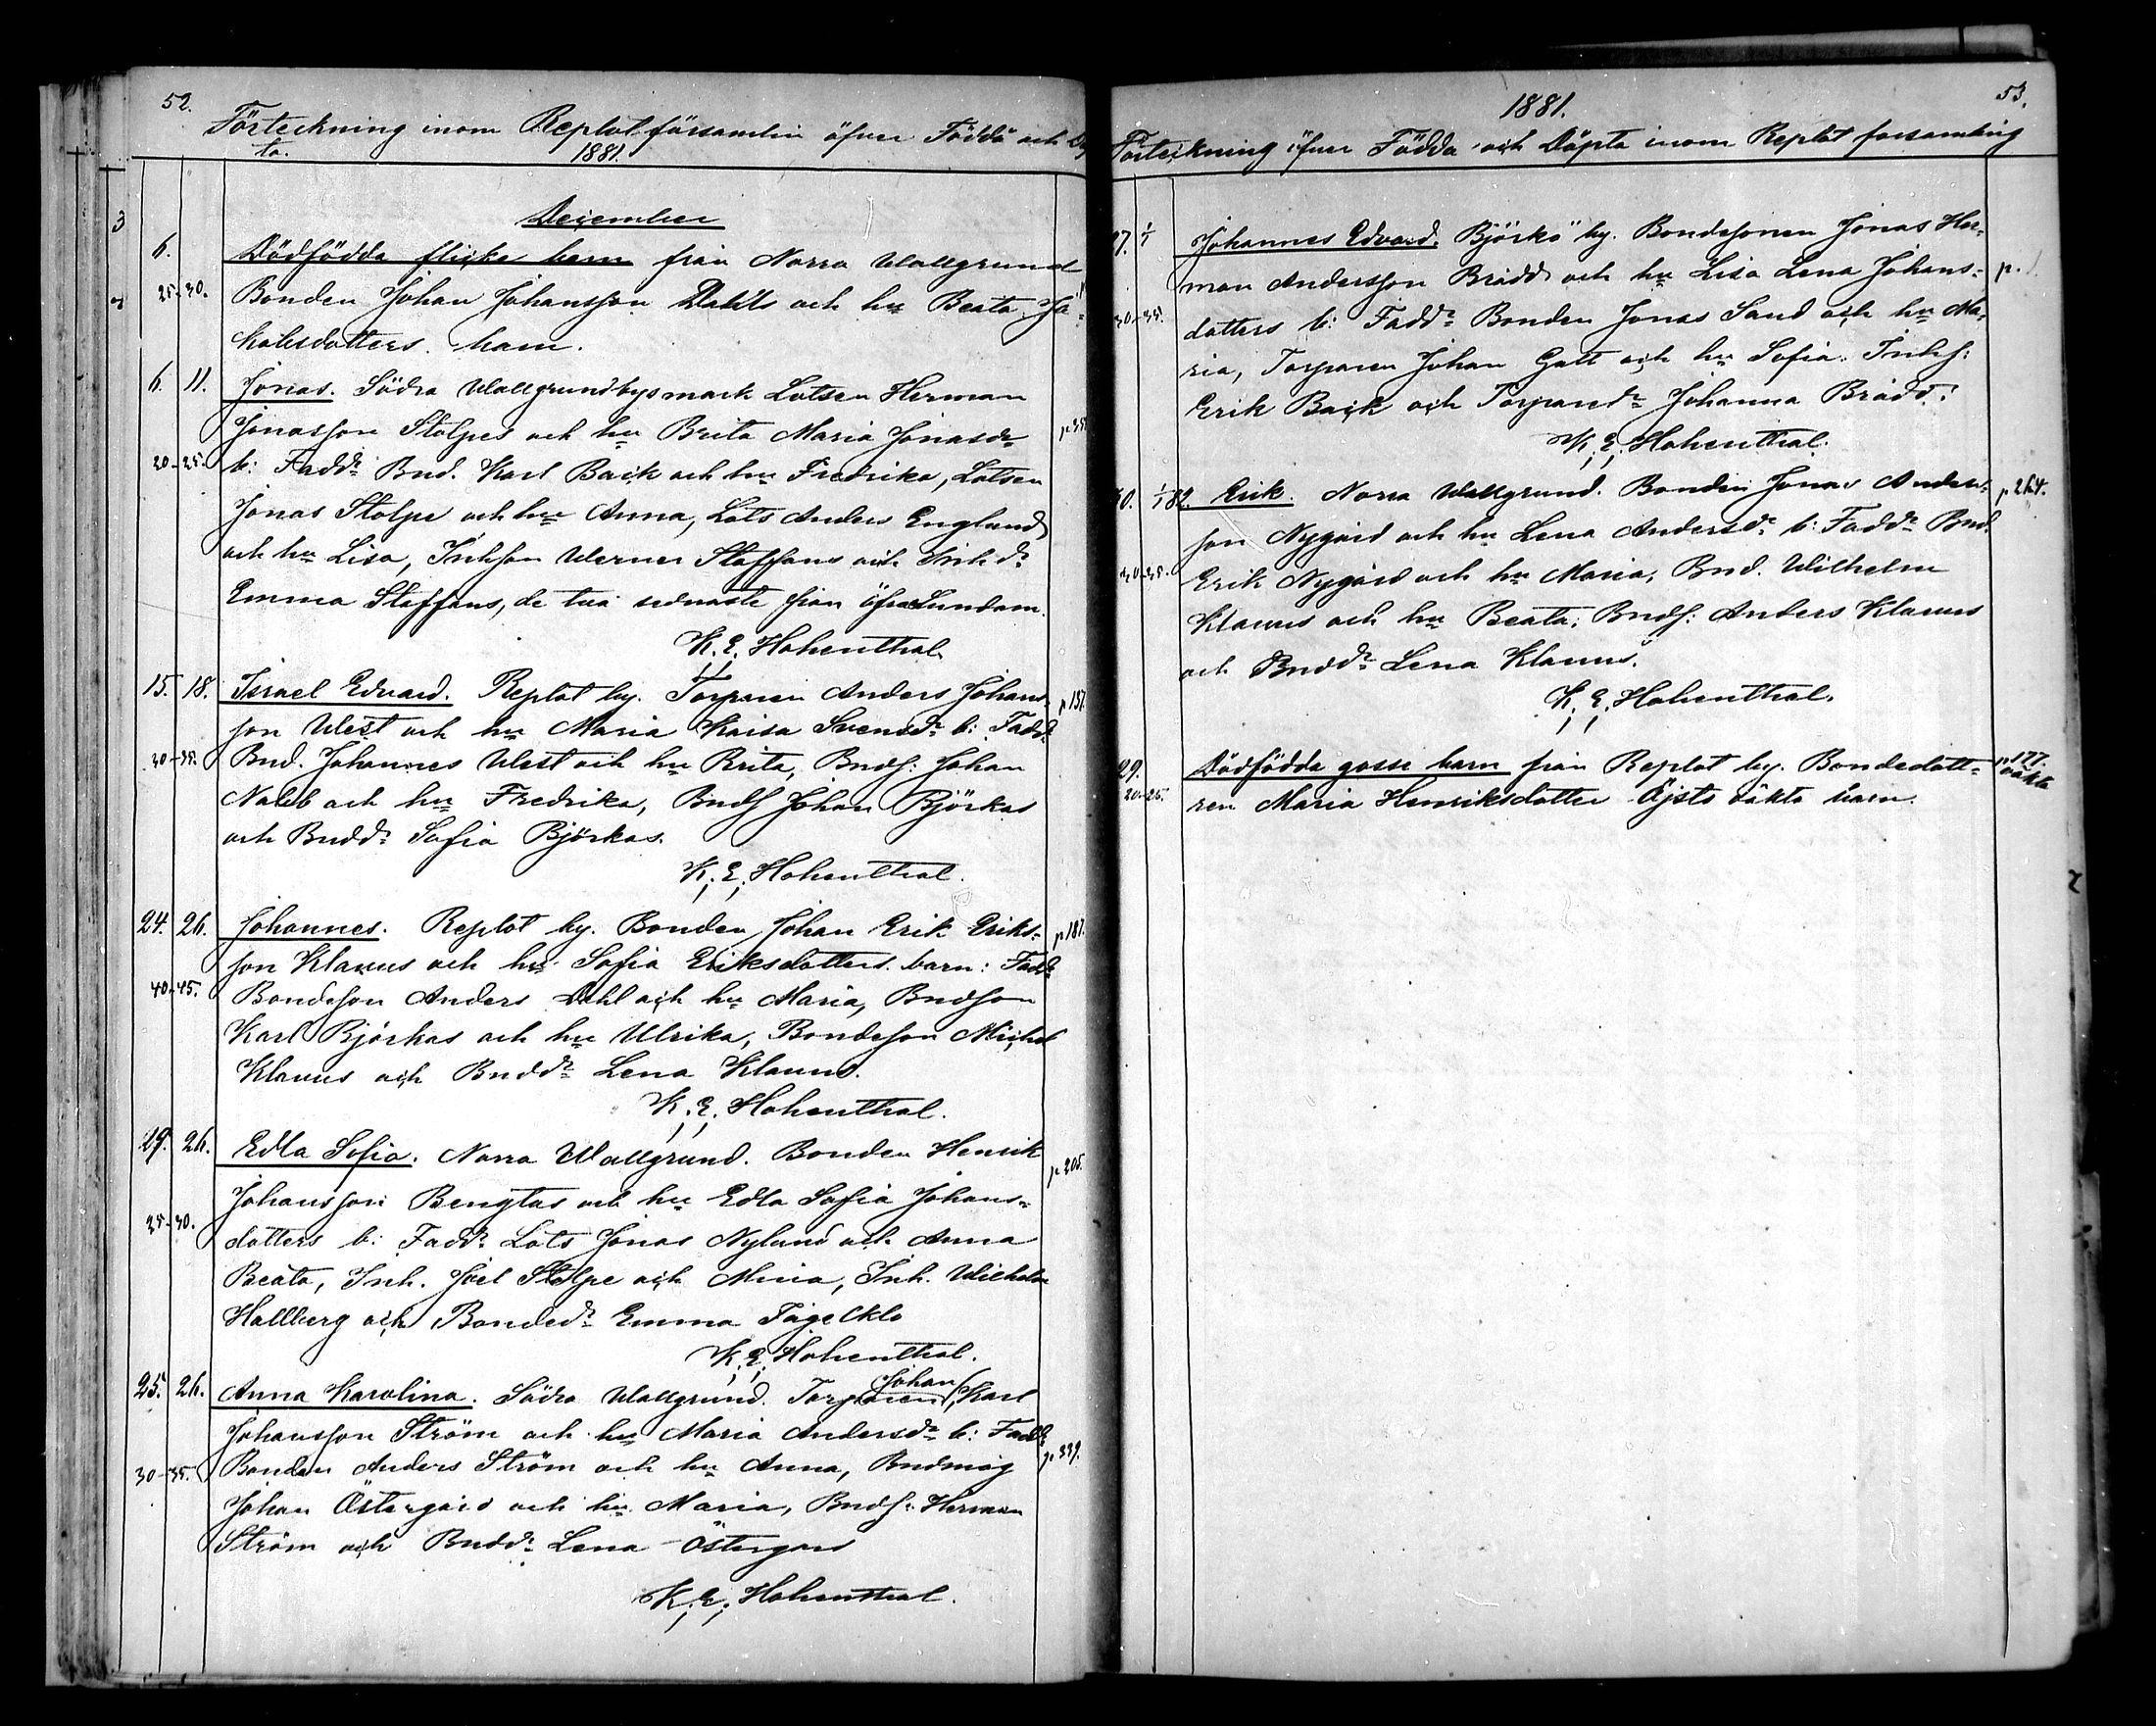 52.
Förteckning inom Replot församlin öfver Födda och Dö
ta. 1881.
December
6. Dödfödda flicke barn från Norra Wallgrund
25-30. Bonden Johan Johansson Dahls och hu Beata Ja-
kobsdotters barn.
6. 11. Jonas. Södra Wallgrundbysmark Lotsen Herman
Jonasson Stolpes och hu Brita Maria Jonasdr
20-25. b: Faddr Bnd. Karl Back och hu Fredrika, Lotsen
Jonas Stolpe och hu Anna, Lots Anders Englund
och hu Lisa, Inhson Werner Staffans och Inhdr
Emma Staffans, de två sednaste från öfra Sundom.
K. E. Hohenthal
15. 18. Israel Edvard. Replot by. Torparen Anders Johans- p 137.
son West och hu Maria Kaisa Svensdr b: Faddr
30-35. Bnd. Johannes West och hu Brita, Bnds: Johan
Nabb och hu Fredrika, Bnds Johan Björkas
och Bnddr Sofia Björkas.
K. E. Hohenthal.
24. 26. Johannes. Replot by. Bonden Johan Erik Eriks- p 181.
son Klavus och hu Sofia Eriksdotters barn: Faddr
40-45. Bondeson Anders Dahl och hu Maria, Bndson
Karl Björkas och hu Ulrika, Bondeson Michel
Klavus och Bnddr Lena Klavus.
K. E. Hohenthal.
26. Edla Sofia. Norra Wallgrund. Bonden Henrik p 205.
Johansson Bengtas och hu Edla Sofia Johans-
25-30. dotters b: Faddr Lots Jonas Nylund och Anna
Beata, Inh. Joel Stolpe och Mina, Inh. Wilhelm
Hallberg och Bondedr Emma Tågeklo
K. E. Hohenthal.
25. 26. Anna Karolina. Södra Wallgrund. Torparen Johan Karl
Johansson Ström och hu Maria Andersdr b: Faddr
30-35. Bonden Anders Ström och hu Anna, Bndmåg p 339.
Johan Östergård och hu Maria, Bnds: Herman
Ström och Bnddr Lena Östergård
K. E. Hohenthal.
53.
1881.
Förteckning öfver Födda och Döpta inom Replot församling
27. 1/1 Johannes Edvard. Björkö by. Bondesonen Jonas Her-
man Andersson Brädd och hu Lisa Lena Johans- p.
30-35. dotters b: Faddr Bonden Jonas Sand och hu Ma-
ria, Torparen Johan Gatt och hu Sofia. Inhs:
Erik Back och Torparedr Johanna Brädd.
K. E. Hohenthal.
30. 1/1 82. Erik. Norra Wallgrund. Bonden Jonas Anders- p 264.
son Nygård och hu Lena Andersdr b: Faddr Bnd.
30-35. Erik Nygård och hu Maria, Bnd. Wilhelm
Klavus och hu Beata. Bnds: Anders Klavus
och Bnddr Lena Klavus.
K. E. Hohenthal.
29. Dödfödda gosse barn från Replot by. Bondedott- p 177.
20-25. ren Maria Henriksdotter Öjsts oäkta barn. oäkta